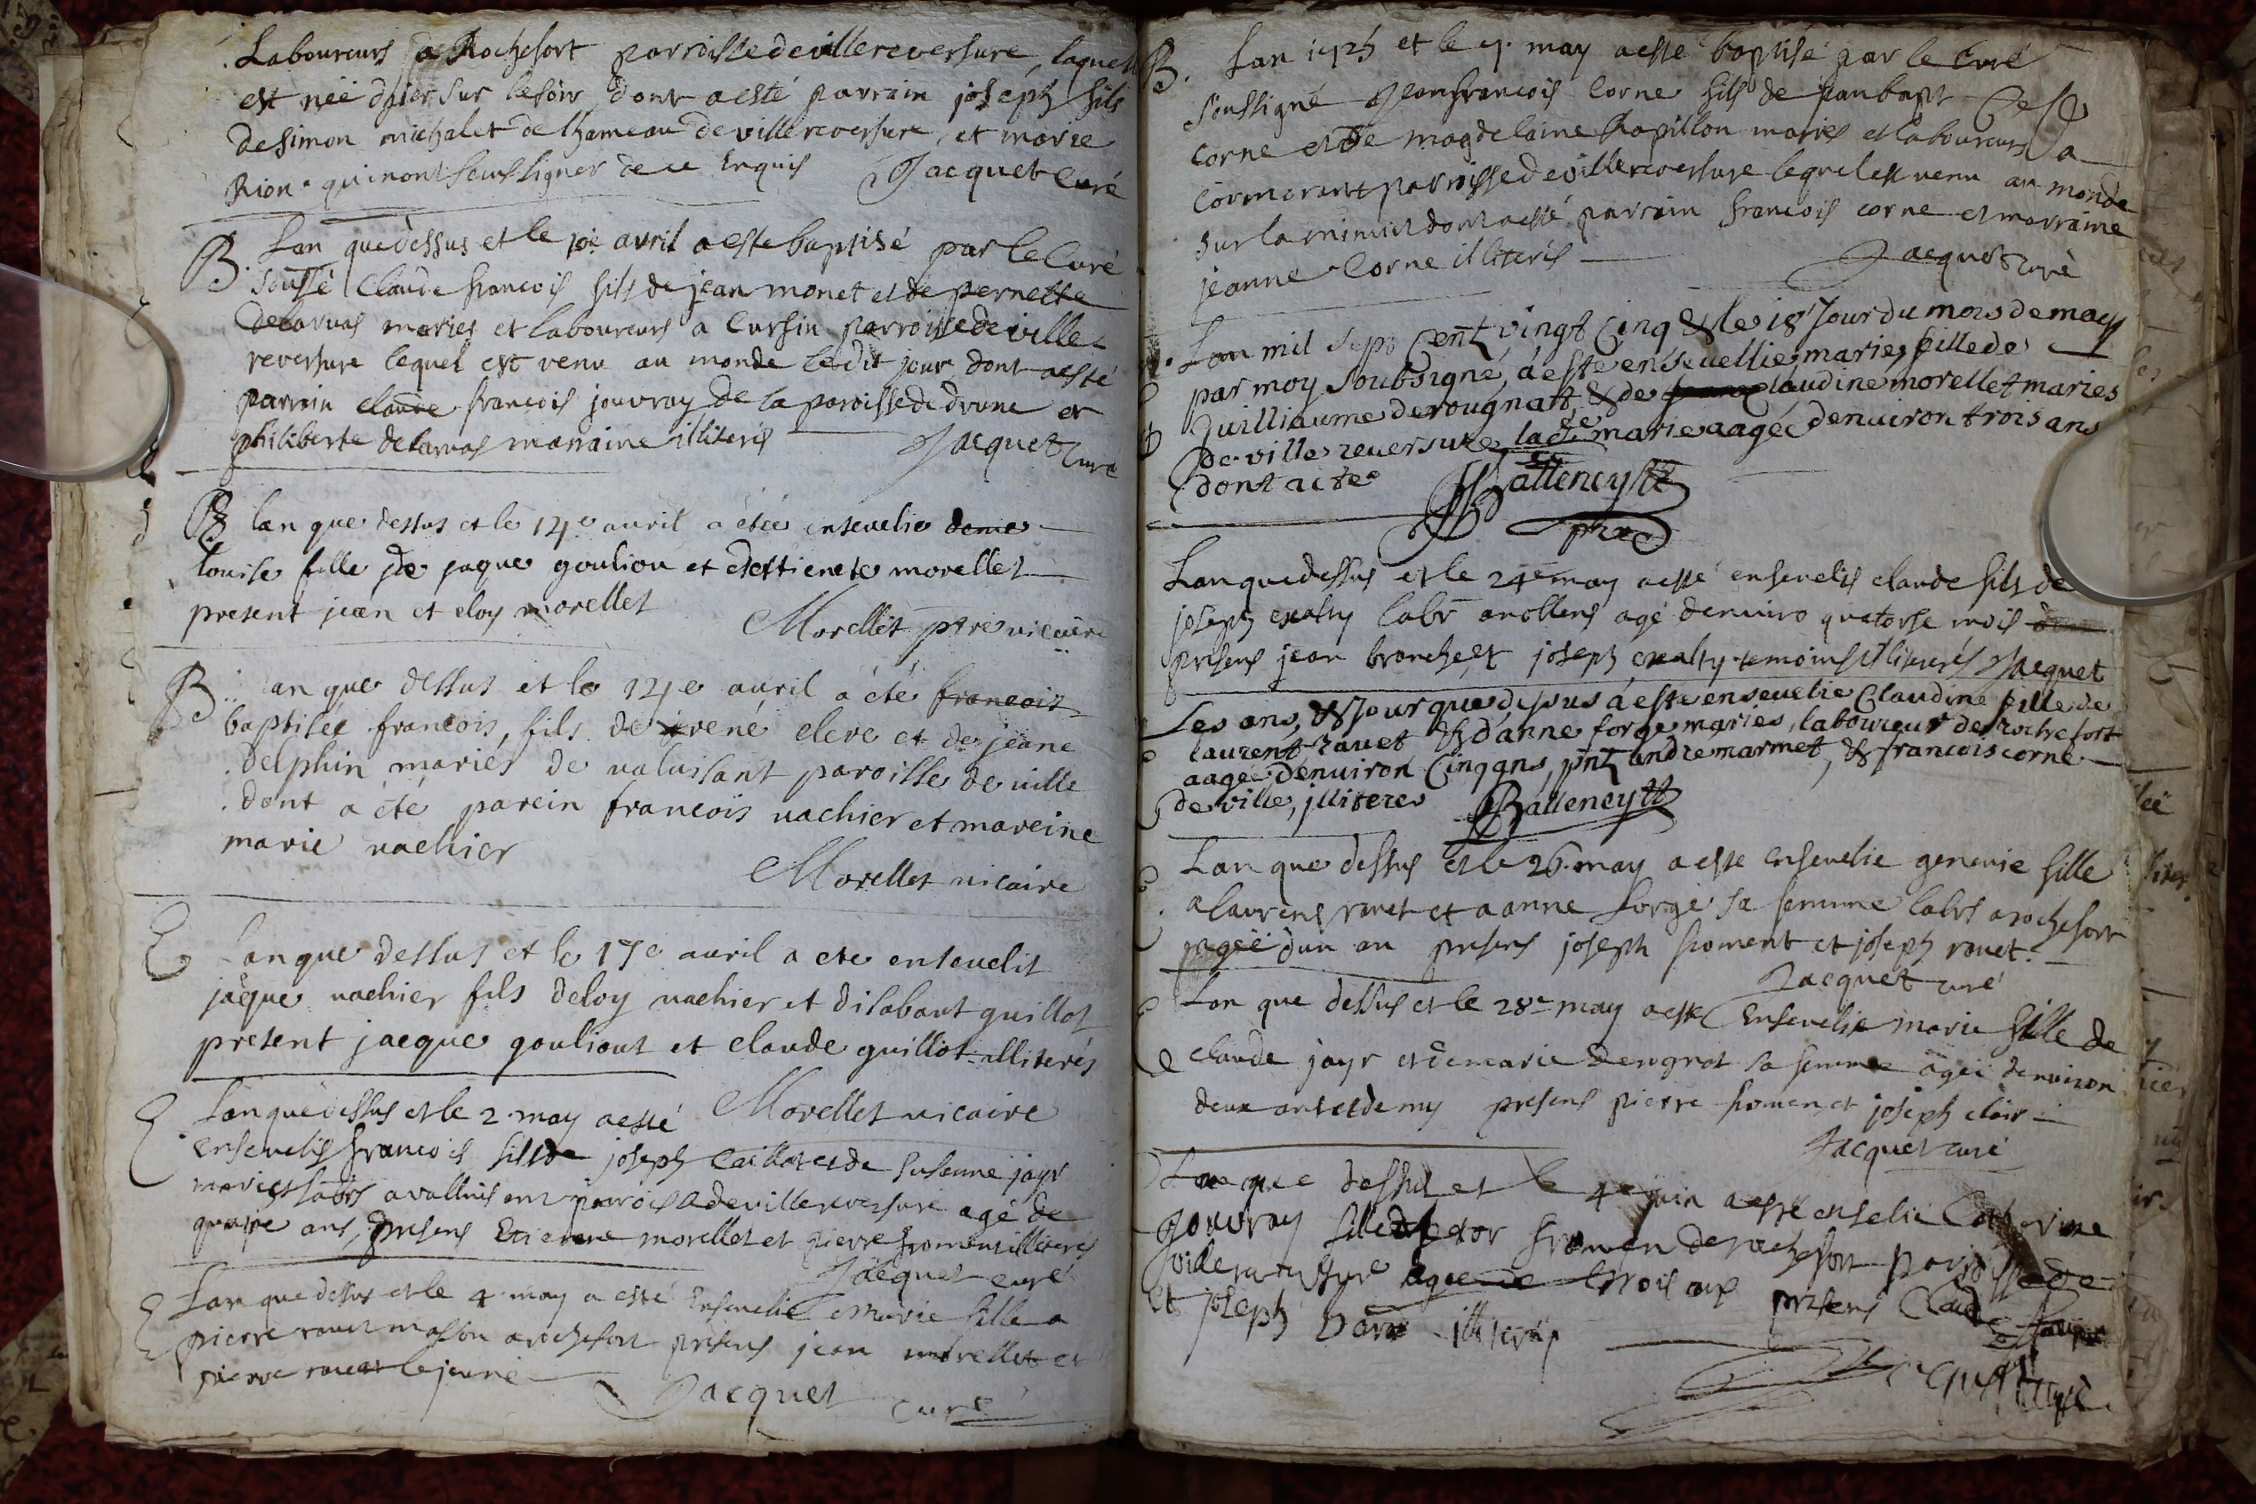 Laboureurs a Rochefort parroisse de villereversure, laquelle
est née dhier sur le soir dont a esté parrain joseph fils
de simon michalet de lhameau de villereversure, et marie
Rion qui nont sceu signer de ce enquis Jacquet Curé
B. Lan que dessus et le 10e avril a este baptisé par le Curé
soussé Claude francois fils de jean monet et de pernette
delarnas maries et laboureurs a Cursin parroisse de ville
reversure lequel est venu au monde ledit jour dont a esté
parrain claude francois jouvray de la paroisse de drune et
philiberte delarnas marraine illiterés Jacquet Curé
lan que dessus et le 14e avril a étée ensevelie deme
louise fille de jaque gouliou et destienete morellet
present jean et eloy morellet
Morellet ptre vicaire
B. lan que dessus et le 14e auril a été francois
baptisée francois, fils de irené eleve et de jeane
delphin mariés de valuisant paroisse de uille
dont a été parein francois vachier et mareine
marie vachier
Morellet vicaire
E lan que dessus et le 17e auril a ete enseuelit
jaque vachier fils deloy vachier et disabaut guillot
present jacque gouliout et claude guillot illiterés
Morellet vicaire
E Lan que dessus et le 2. may a esté
ensevelis francois fils de joseph Caillat et de susanne jayr
maries labrs a valluisant parroisse de villereversure agé de
quatre ans, presens Etienne morellet et pierre froment illiteres
Jacquet curé
E Lan que dessus et le 4. may a esté ensevelie Marie fille a
pierre rauet masson a rochefort presens jean morellet et
pierre rauet le jeune
Jacquet curé
B. Lan 1725 et le 7. may a esté baptisé par le Curé
soussigné Jean francois Corne fils de jean bapt
corne et de magdelaine papillon maries et laboureurs a
Cormorant parroisse de villereversure lequel est venu au monde
sur la minuit dont a esté parrain francois corne et marraine
jeanne Corne illiterés Jacquet Curé
Lan mil sept cent vingt Cinq & le 18e Jour du mois de may
par moy soubsigné, a este ensevellie marie fille de
Guilliaume derougnatt, & de claudine morellet maries
de ville reuersure ladte marie aagée denuiron trois ans
dont acte Balleneytt
ptre
Lan que dessus et le 24e may a esté ensevelis claude fils de
joseph exalty labr a nollens agé denuiro quatorse mois
presens jean branche et joseph exalty temoins illiterés Jacquet
Les ans, & Jour que dessus a este enseuelie Claudine fille de
laurent rauet & d'anne forge maries, laboureur de rochefort
aagée denuiron Cinq ans, pnt andre marmet, & francois corne
de ville, illiteres Balleneytt
Lan que dessus et le 26. may a esté ensevelie genevie fille
a laurens rauet et a anne forge sa femme labrs a rochefort
agée dun an presens joseph froment et joseph rauet.
Jacquet curé
Lan que dessus et le 28e may a esté Ensevelie marie fille de
claude jayr et de marie derognat sa femme agée denuiron
deux ans et demy presens pierre fromen et joseph clair
Jacquet curé
Lan que dessus et le 4e juin a esté enselie Catherine
gouvray fille fromen de rochefort parroisse de
villereversure agee de trois ans presens Claude
et joseph illiterés